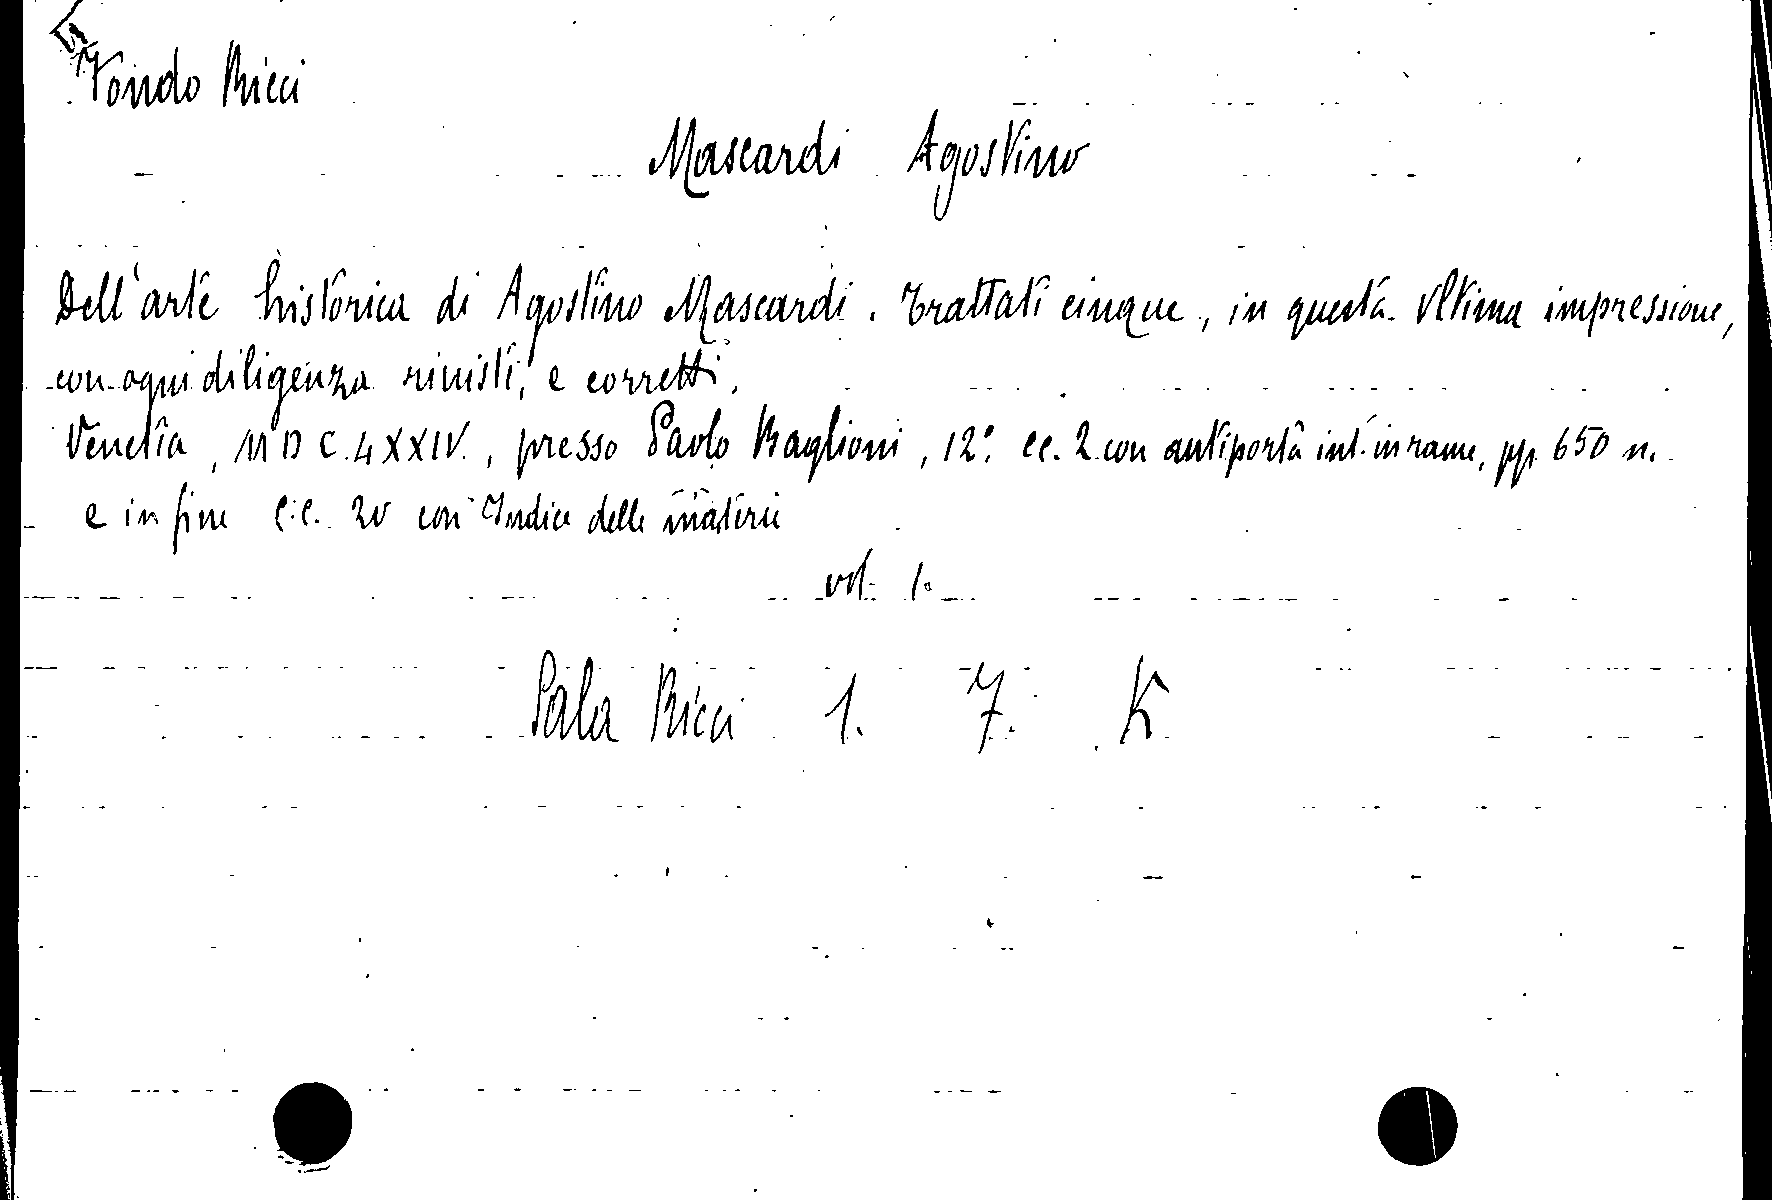 Fondo Ricci
Mascardi Agostino
Dell'arte historica di Agostino Mascardi. Trattati cinque, in questa Vltima impressione,
con ogni diligenza riuisti, e corretti.
Venetia, MDCLXXIV., presso Paolo Baglioni, 12º. cc. 2 con antiporta int. in rame, pp. 650 n.
e in fine c.c. 20 con Indice delle materie
vol. 1.
Sala Ricci 1. 7. K